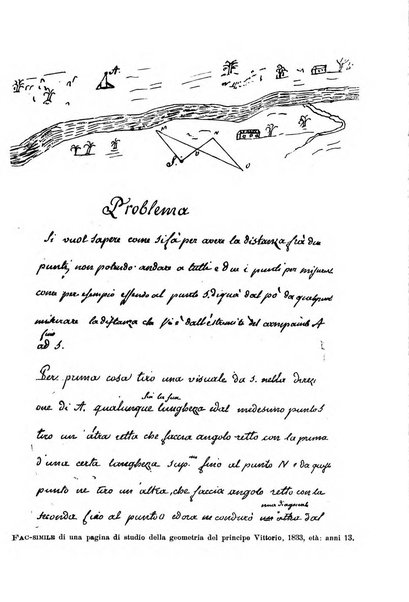 A.
M
N
S.
D
O
Problema
Si vuol sapere come si fà per avere la distanza frà due
punti, non potendo andare a tutti e due i punti per misurare
come per esempio essendo al punto S. di quà dal pò da qual punto
misurare la distanza che vi è dall'estremità del campanile A
fino
ad S.
Per prima cosa tiro una visuale da S. nella direzi
sia la sua
one di A. qualunque lungheza e dal medesimo punto S
tiro un'altra retta che faccia angolo retto con la prima
d'una certa lungheza sup. fino al punto N e da quest
punto ne tiro un altra, che faccia angolo retto con la
una diagonale
seconda fino al punto O ed ora ne conduco un'altra dal
FAC-SIMILE di una pagina di studio della geometria del principe Vittorio, 1833, età: anni 13.